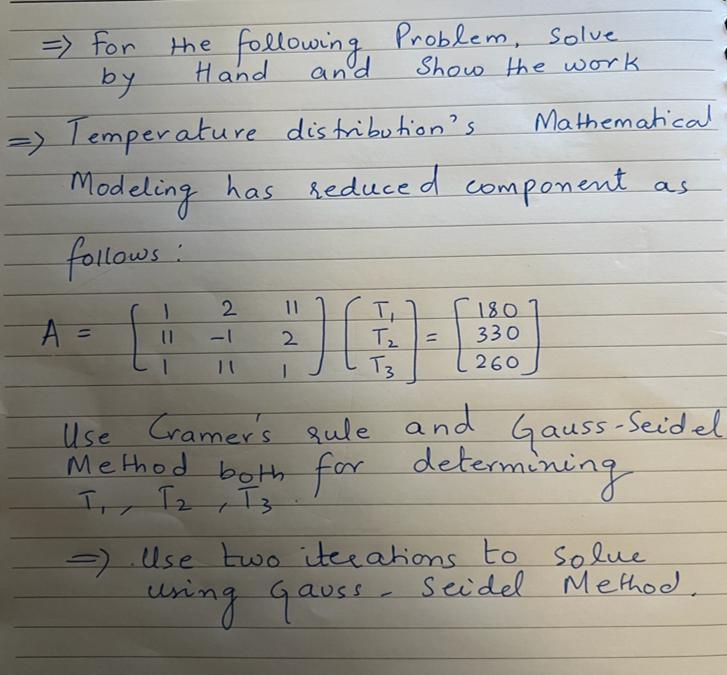 ⇒ For the following Problem, Solve
by Hand and Show the work
⇒ Temperature distribution's Mathematical
Modeling has reduced component as
follows:
A = [ 1 2 11 ] [ T₁ ] = [ 180 ]
[ 11 -1 2 ] [ T₂ ] = [ 330 ]
[ 1 11 1 ] [ T₃ ] [ 260 ]
Use Cramer's rule and Gauss-Seidel
Method both for determining
T₁, T₂, T₃.
⇒ Use two iterations to solve
using Gauss-Seidel Method.